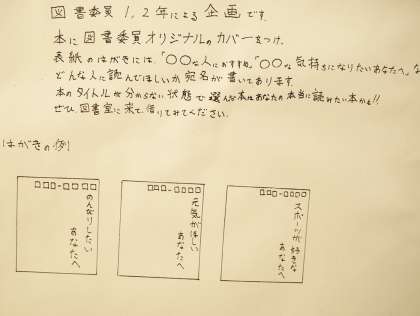 図書委員1,2年による企画です。
本に図書委員オリジナルのカバーをつけ、
表紙のはがきには、「〇〇な人におすすめ」「〇〇な気持ちになりたいあなたへ」な
どんな人に読んでほしいか宛名が書いてあります。
本のタイトルが分からない状態で選んだ本はあなたの本当に読みたい本かも!!
ぜひ図書室に来て、借りてみてください。
はがきの例
□□□-□□□□
のんびりしたい
あなたへ
□□□-□□□□
元気がほしい
あなたへ
□□□-□□□□
スポーツが好きな
あなたへ